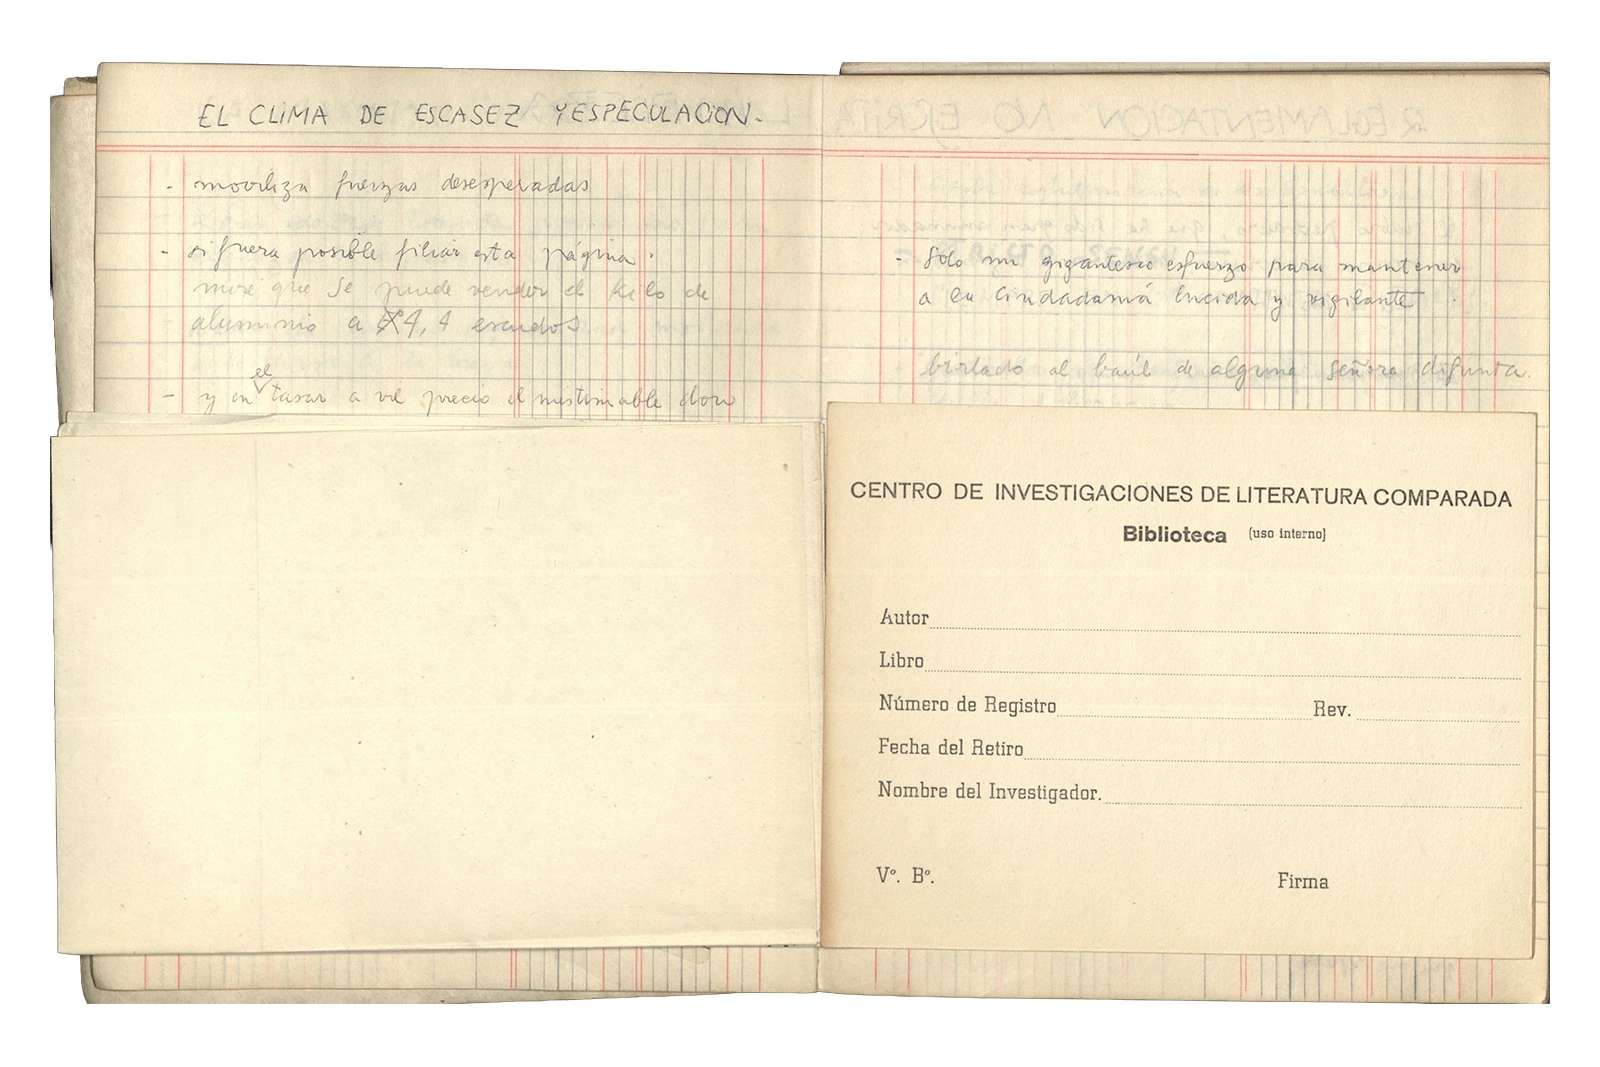 EL CLIMA DE ESCASEZ Y ESPECULACION.
- moviliza fuerzas desesperadas
- si fuera posible filiar esta página.
que se puede vender el kilo de
aluminio a 4,4 escudos
el
- y en tasar a vil precio el inestimable don
REGLAMENTACION NO ESCRITA
- Solo un gigantesco esfuerzo para mantener
a la ciudadanía lucida y vigilante.
birlado al baúl de alguna señora difunta.
CENTRO DE INVESTIGACIONES DE LITERATURA COMPARADA
Biblioteca (uso interno)
Autor
Libro
Número de Registro Rev.
Fecha del Retiro
Nombre del Investigador.
Vº. Bº. Firma